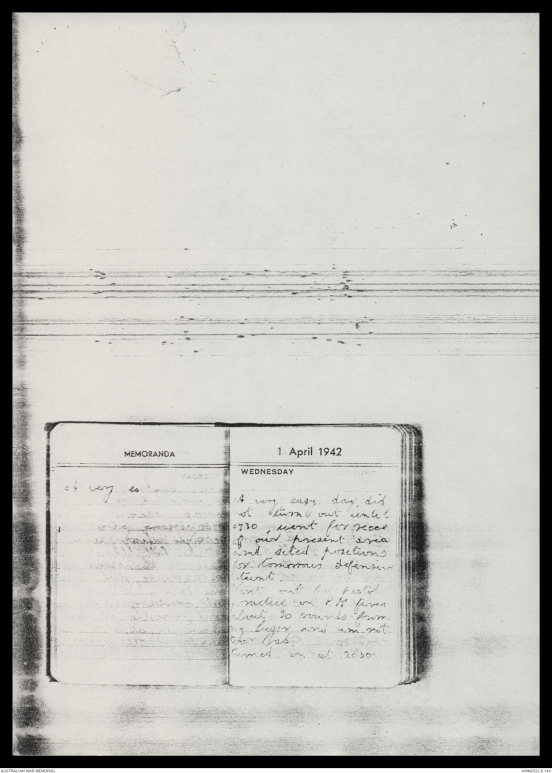 MEMORANDA
A very ea
1 April 1942
WEDNESDAY
A very easy day, did
not turn out until
0730, went for recce
of our present area
and sited positions
for tomorrows defensive
stunt
Went out for pistol
practice in P.M. fired
about 30 rounds from
my luger and am not
too bad.
Turned in at 2030
AUSTRALIAN WAR MEMORIAL